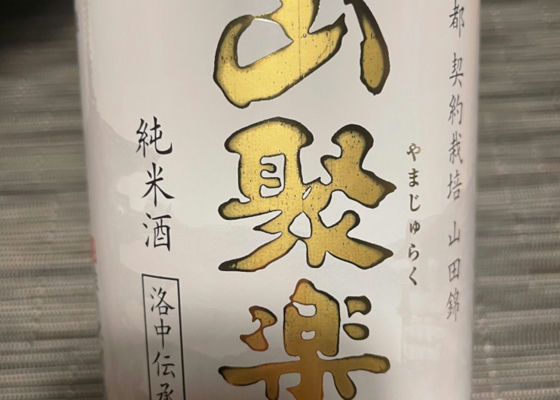 都 契約栽培 山田錦
やまじゅらく
山聚楽
純米酒
洛中伝承